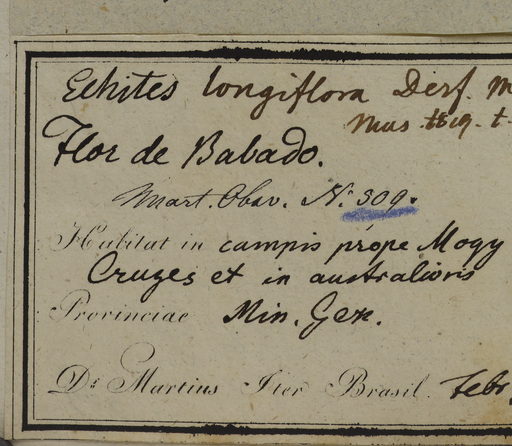 Echites longiflora Desf. M
Mus. t. 19. t.
Flor de Babado.
Mart. Obsv. N. 309.
Habitat in campis prope Mogy
Cruzes et in australioris
Provinciae Min. Gen.
Dr. Martius Iter Brasil. Febr.